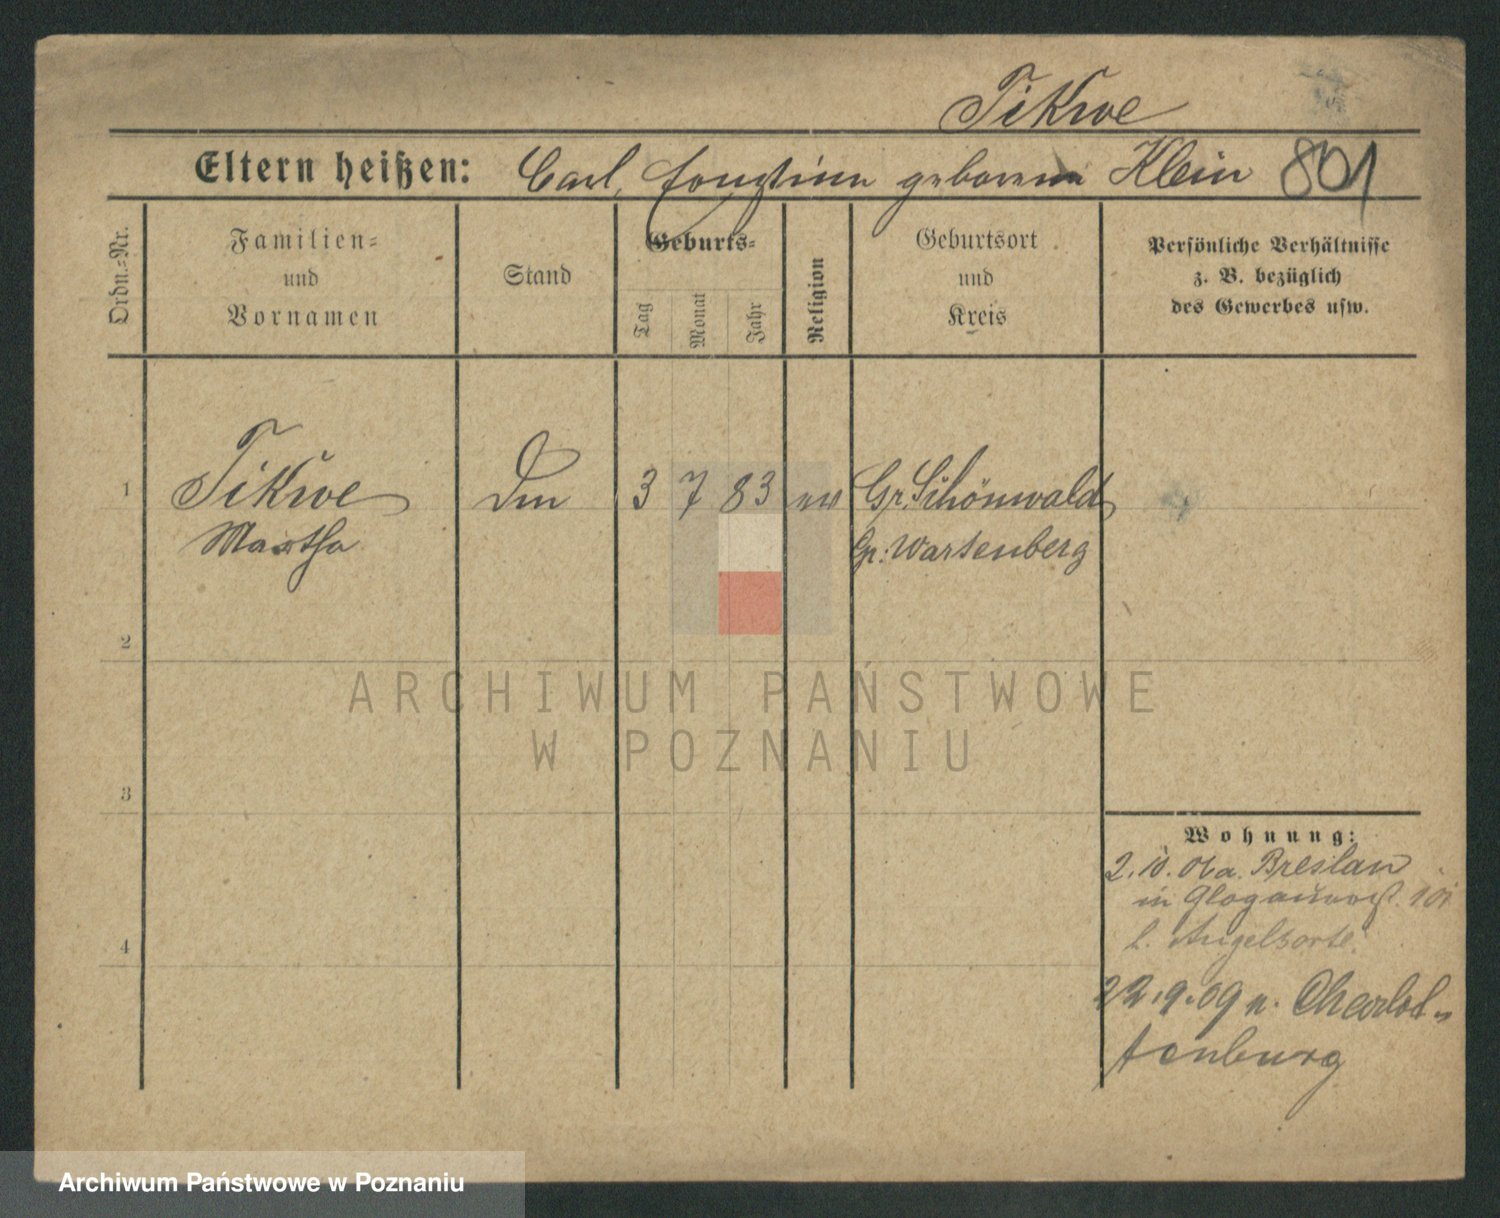 Tikwe
Eltern heißen: Carl, geborene Klein 801
Ordn.=Nr.
Familien=
und
Vornamen
Stand
Geburts=
Tag
Monat
Jahr
Religion
Geburtsort
und
Kreis
Persönliche Verhältnisse
z. B. bezüglich
des Gewerbes usw.
1 Tikwe 3 7 83 ev Gr. Schönwald
Martha Gr. Wartenberg
2
3
4
Wohnung:
2.10.06 a. Breslau
in
22.9.09 n. Charlot=
tenburg
ARCHIWUM PAŃSTWOWE
W POZNANIU
Archiwum Państwowe w Poznaniu